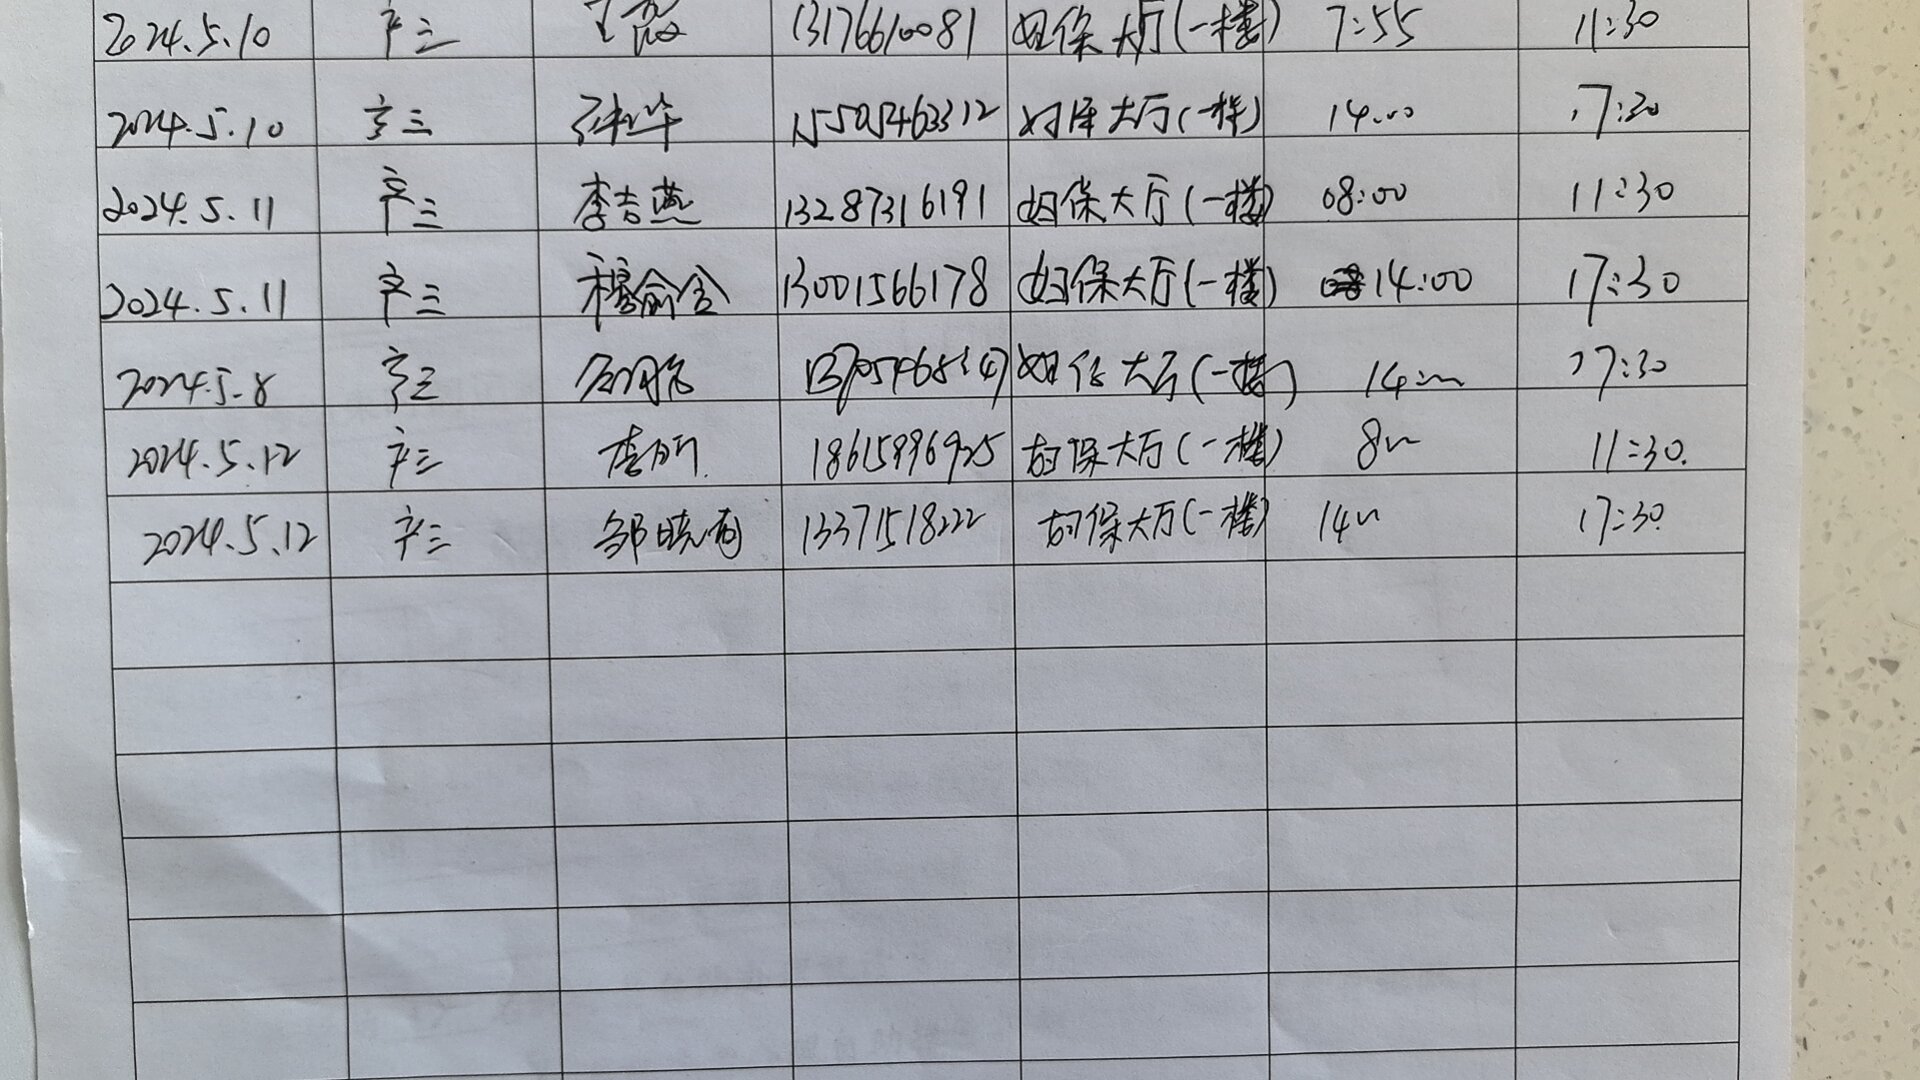 2024.5.10 辛三 王 13176610081 妇保大厅(一楼) 7:55 11:30
2024.5.10 辛三 张华 15505463312 妇保大厅(一楼) 14:00 17:30
2024.5.11 辛三 李吉燕 13287316191 妇保大厅(一楼) 08:00 11:30
2024.5.11 辛三 穆俞含 13001566178 妇保大厅(一楼) 14:00 17:30
2024.5.8 辛三 妇保大厅(一楼) 14:00 17:30
2024.5.12 辛三 李 妇保大厅(一楼) 8:00 11:30.
2024.5.12 辛三 邹晓雨 13371518222 妇保大厅(一楼) 14:00 17:30